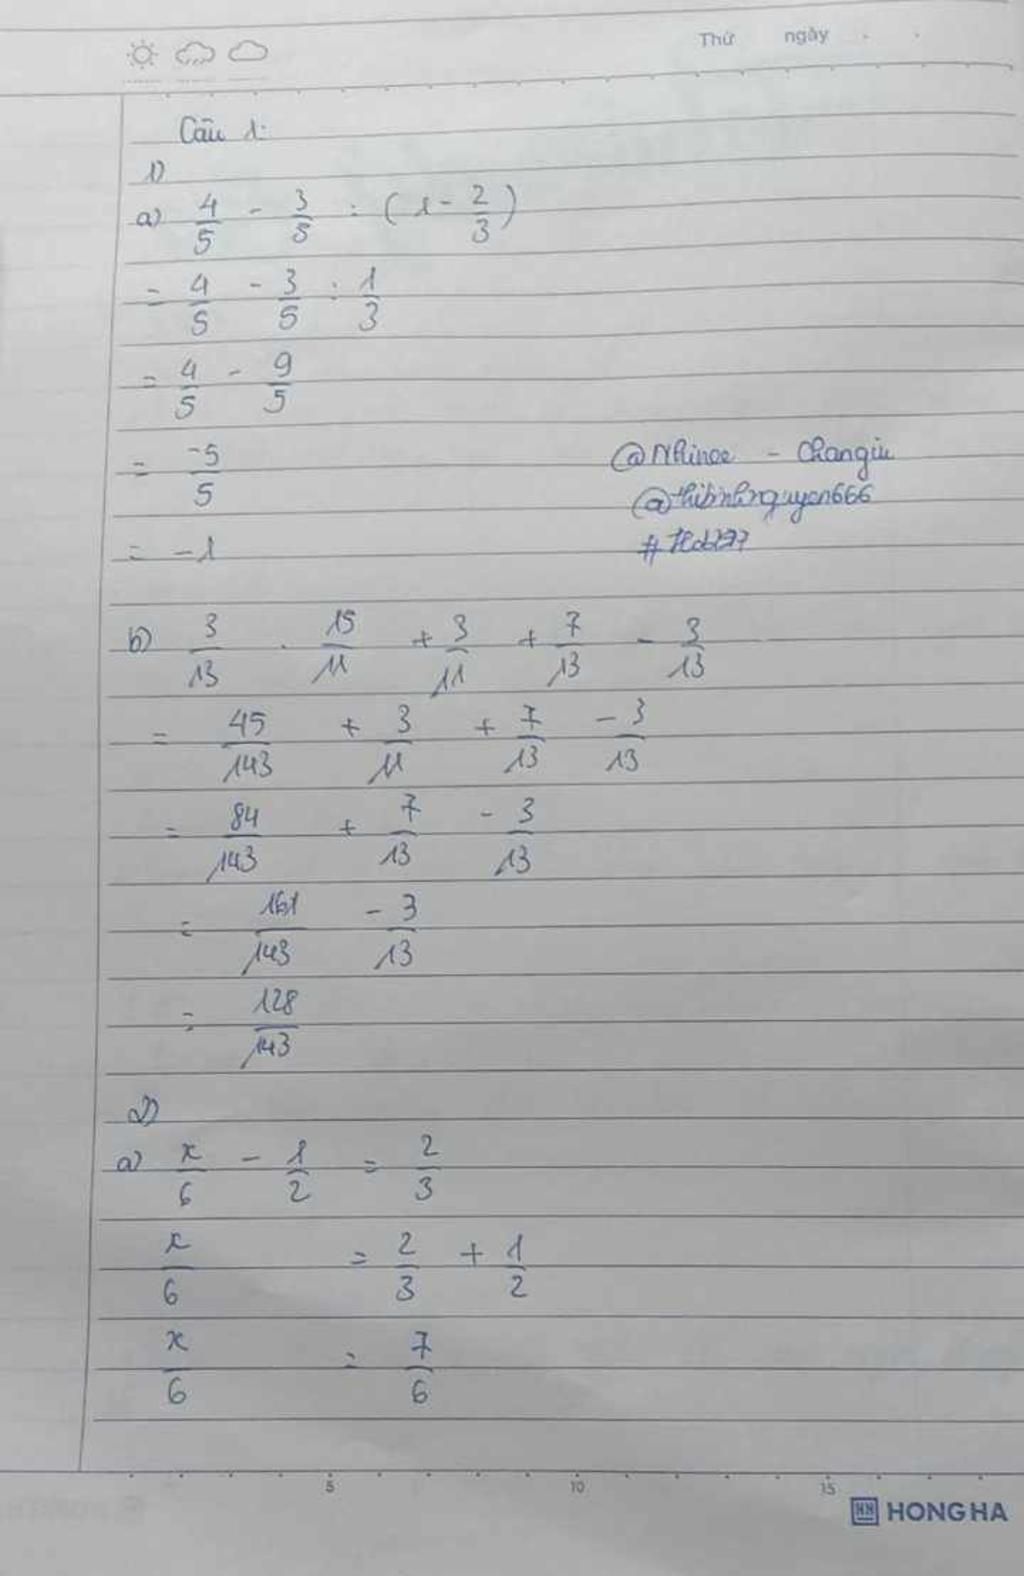 Thứ ngày . .
Câu 1:
1)
a) 4/5 - 3/5 : (1 - 2/3)
= 4/5 - 3/5 : 1/3
= 4/5 - 9/5
= -5/5
= -1
@Nhinoe - Changiu
#Hd297
b) 3/13 . 15/11 + 3/11 + 7/13 - 3/13
= 45/143 + 3/11 + 7/13 - 3/13
= 84/143 + 7/13 - 3/13
= 161/143 - 3/13
= 128/143
2)
a) x/6 - 1/2 = 2/3
x/6 = 2/3 + 1/2
x/6 = 7/6
5 10 15
HONG HA